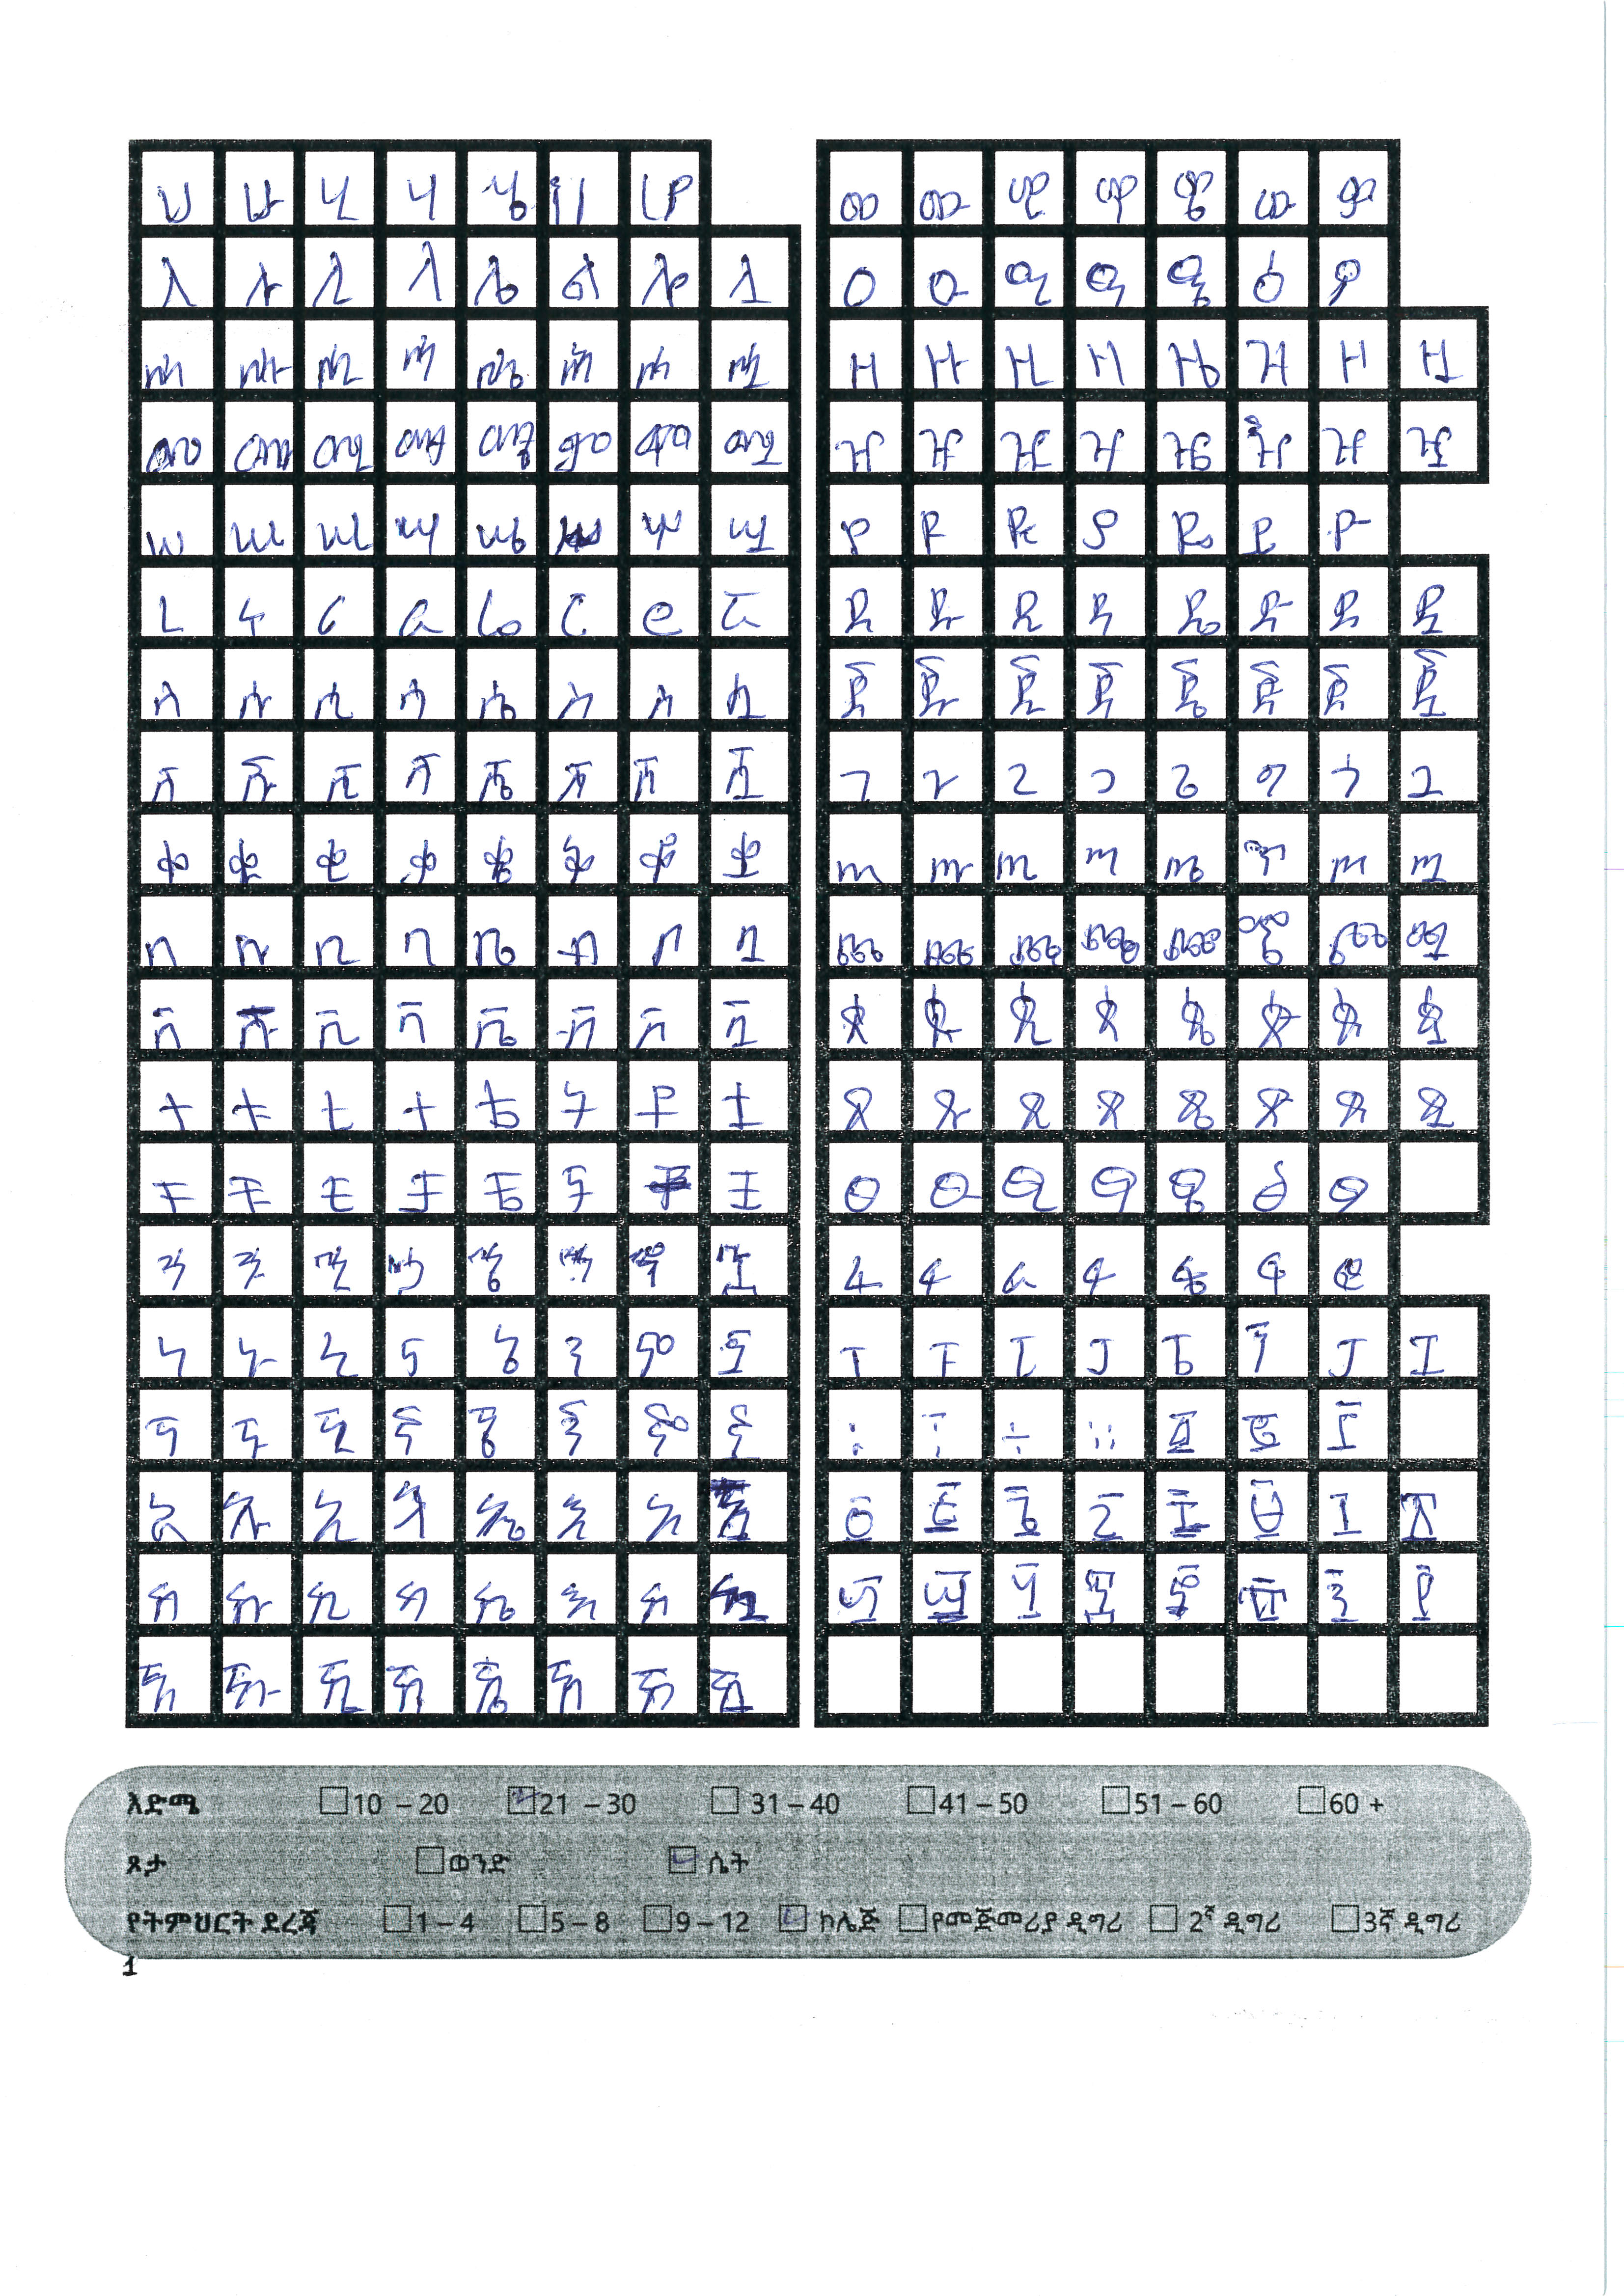 ሀ ሁ ሂ ሃ ሄ ህ ሆ
ለ ሉ ሊ ላ ሌ ል ሎ ሏ
ሐ ሑ ሒ ሓ ሔ ሕ ሖ ሗ
መ ሙ ሚ ማ ሜ ም ሞ ሟ
ሠ ሡ ሢ ሣ ሤ ሦ ሧ
ረ ሩ ሪ ራ ሬ ር ሮ ሯ
ሰ ሱ ሲ ሳ ሴ ስ ሶ ሷ
ሸ ሹ ሺ ሻ ሼ ሽ ሾ ሿ
ቀ ቁ ቂ ቃ ቄ ቅ ቆ ቋ
በ ቡ ቢ ባ ቤ ብ ቦ ቧ
ቨ ቩ ቪ ቫ ቬ ቭ ቮ ቯ
ተ ቱ ቲ ታ ቴ ት ቶ ቷ
ቸ ቹ ቺ ቻ ቼ ች ቿ
ኀ ኁ ኂ ኃ ኄ ኅ ኆ ኋ
ነ ኑ ኒ ና ኔ ን ኖ ኗ
ኘ ኙ ኚ ኛ ኜ ኝ ኞ ኟ
አ ኡ ኢ ኣ ኤ እ ኦ
ከ ኩ ኪ ካ ኬ ክ ኮ ኳ
ኸ ኹ ኺ ኻ ኼ ኽ ኾ ዃ
ወ ዉ ዊ ዋ ዌ ው ዎ
ዐ ዑ ዒ ዓ ዔ ዕ ዖ
ዘ ዙ ዚ ዛ ዜ ዝ ዞ ዟ
ዠ ዡ ዢ ዣ ዤ ዥ ዦ ዧ
የ ዩ ዪ ያ ዬ ይ ዮ
ደ ዱ ዲ ዳ ዴ ድ ዶ ዷ
ጀ ጁ ጂ ጃ ጄ ጅ ጆ ጇ
ገ ጉ ጊ ጋ ጌ ግ ጎ ጓ
ጠ ጡ ጢ ጣ ጤ ጥ ጦ ጧ
ጨ ጩ ጪ ጫ ጬ ጭ ጮ ጯ
ጰ ጱ ጲ ጳ ጴ ጵ ጶ ጷ
ጸ ጹ ጺ ጻ ጼ ጽ ጾ ጿ
ፀ ፁ ፂ ፃ ፄ ፅ ፆ
ፈ ፉ ፊ ፋ ፌ ፍ ፎ
ፐ ፑ ፒ ፓ ፔ ፕ ፖ ፗ
፡ ፣ ፤ ። ፩ ፪ ፫
፬ ፭ ፮ ፯ ፰ ፱ ፲ ፳
፴ ፵ ፶ ፷ ፸ ፹ ፺ ፻
እድሜ 10 – 20 21 – 30 31 – 40 41 – 50 51 – 60 60 +
ጾታ ወንድ ሴት
የትምህርት ደረጃ 1 – 4 5 – 8 9 – 12 ኮሌጅ የመጀመሪያ ዲግሪ 2ኛ ዲግሪ 3ኛ ዲግሪ
1